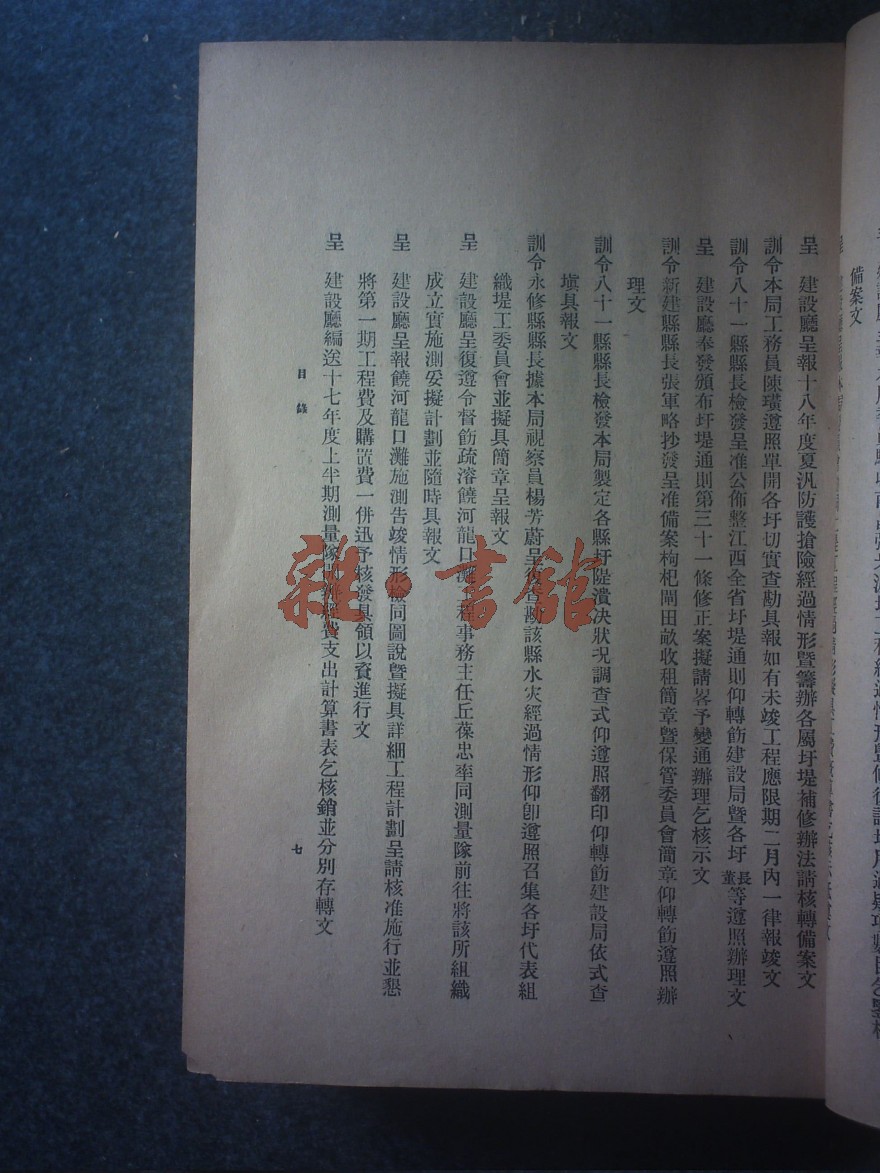 備案文
呈　建設廳呈報十八年度夏汛防護搶險經過情形暨籌辦各屬圩堤補修辦法請核轉備案文
訓令本局工務員陳璜遵照單開各圩切實查勘具報如有未竣工程應限期二月內一律報竣文
訓令八十一縣縣長檢發呈准公佈整江西全省圩堤通則仰轉飭建設局暨各圩長董等遵照辦理文
呈　建設廳奉發頒布圩堤通則第三十一條修正案擬請畧予變通辦理乞核示文
訓令新建縣縣長張軍略抄發呈准備案枸杞閘田畝收租簡章暨保管委員會簡章仰轉飭遵照辦
理文
訓令八十一縣縣長檢發本局製定各縣圩隄潰決狀況調查式仰遵照翻印仰轉飭建設局依式查
塡具報文
訓令永修縣縣長據本局視察員楊芳蔚呈復查勘該縣水災經過情形仰卽遵照召集各圩代表組
織堤工委員會並擬具簡章呈報文
呈　建設廳呈復遵令督飭疏溶饒河龍口灘程事務主任丘葆忠率同測量隊前往將該所組織
成立實施測妥擬計劃並隨時具報文
呈　建設廳呈報饒河龍口灘施測告竣情形檢同圖說暨擬具詳細工程計劃呈請核准施行並懇
將第一期工程費及購置費一併迅予核發具領以資進行文
呈　建設廳編送十七年度上半期測量隊經費支出計算書表乞核銷並分別存轉文
目錄
七
雜·書館